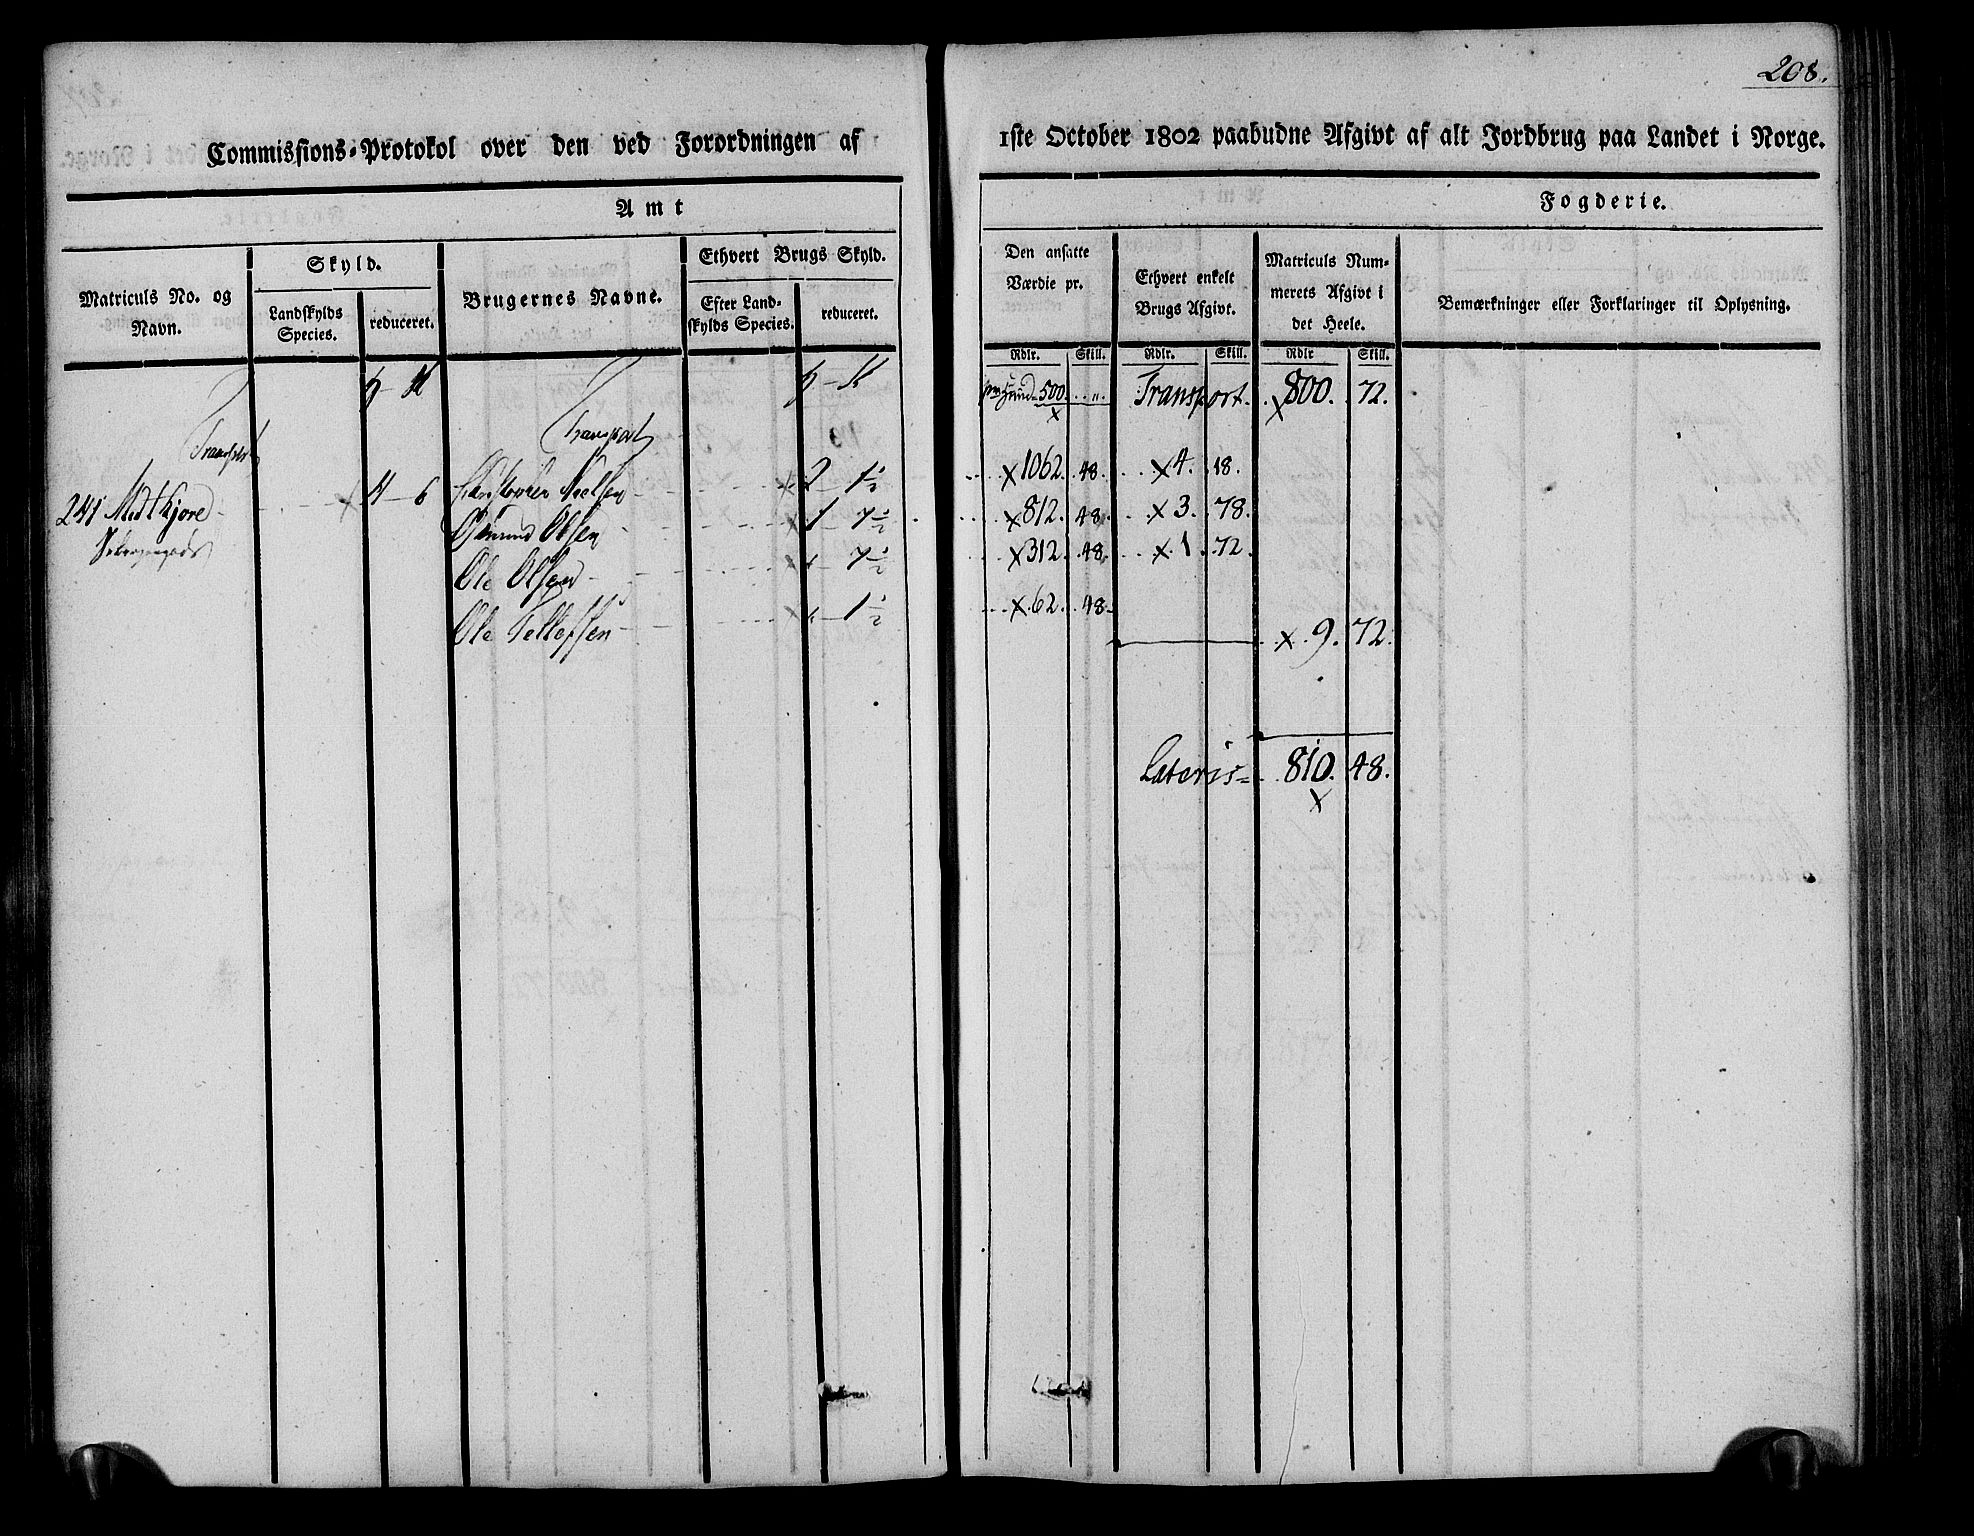 208.
Commissions-Protokol over den ved Forordningen af 1ste October 1802 paabudne Afgivt af alt Jordbrug paa Landet i Norge.
Amt
Fogderie.
Matriculs No. og Navn.
Skyld.
Landskylds Species.
reduceret.
Brugernes Navne.
Ethvert Brugs Skyld.
Efter Landskylds Species.
reduceret.
Den ansatte Værdie pr.
Ethvert enkelt Brugs Afgivt.
Matriculs Nummerets Afgivt i det Heele.
Bemærkninger eller Forklaringer til Oplysning.
Rdlr. Skill. Rdlr. Skill. Rdlr Skill.
500. „. Transport. x 800. 72.
Transport
Transport
241 x 4 - 6 Nielsen x 2 - 1½ x 1062. 48. x 4. 18.
Olsen x 1 7½ x 812. 48. x 3. 78.
Ole Olsen x „ 7½ x 312. 48. x 1. 72.
Ole Tellefsen x „ 1½ x 62. 48.
x 9. 72.
Lateris 810. 48.
x